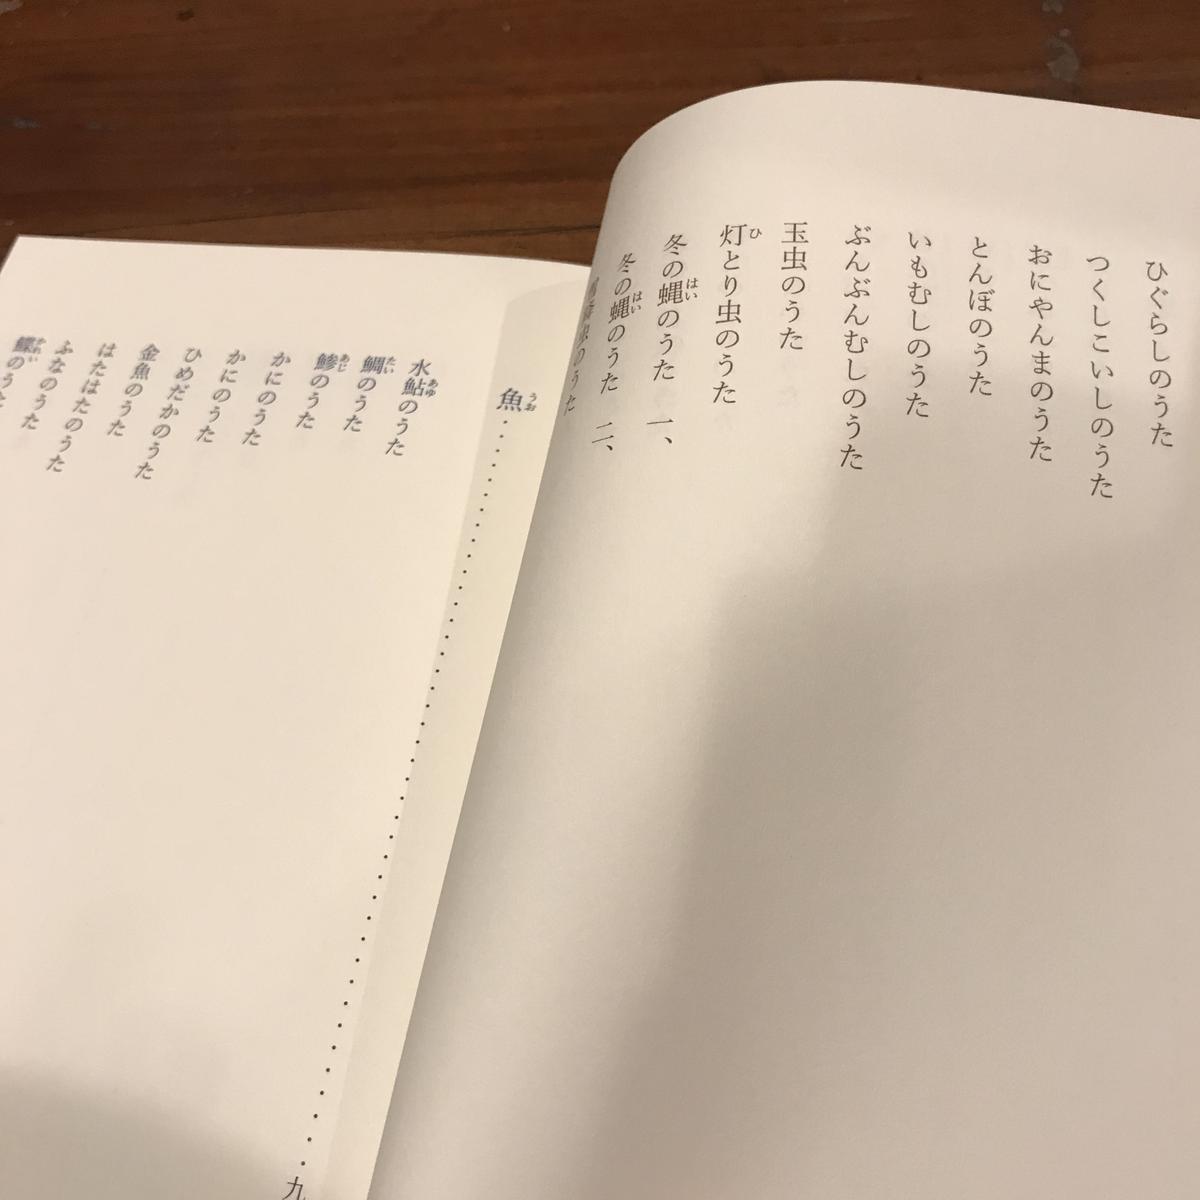 ひぐらしのうた
つくしこいしのうた
おにやんまのうた
とんぼのうた
いもむしのうた
ぶんぶんむしのうた
玉虫のうた
灯とり虫のうた
冬の蝿のうた 一、
冬の蝿のうた 二、
虫のうた
魚……九
水鮎のうた
鯛のうた
鯵のうた
かにのうた
かにのうた
ひめだかのうた
金魚のうた
はたはたのうた
ふなのうた
鰈のうた